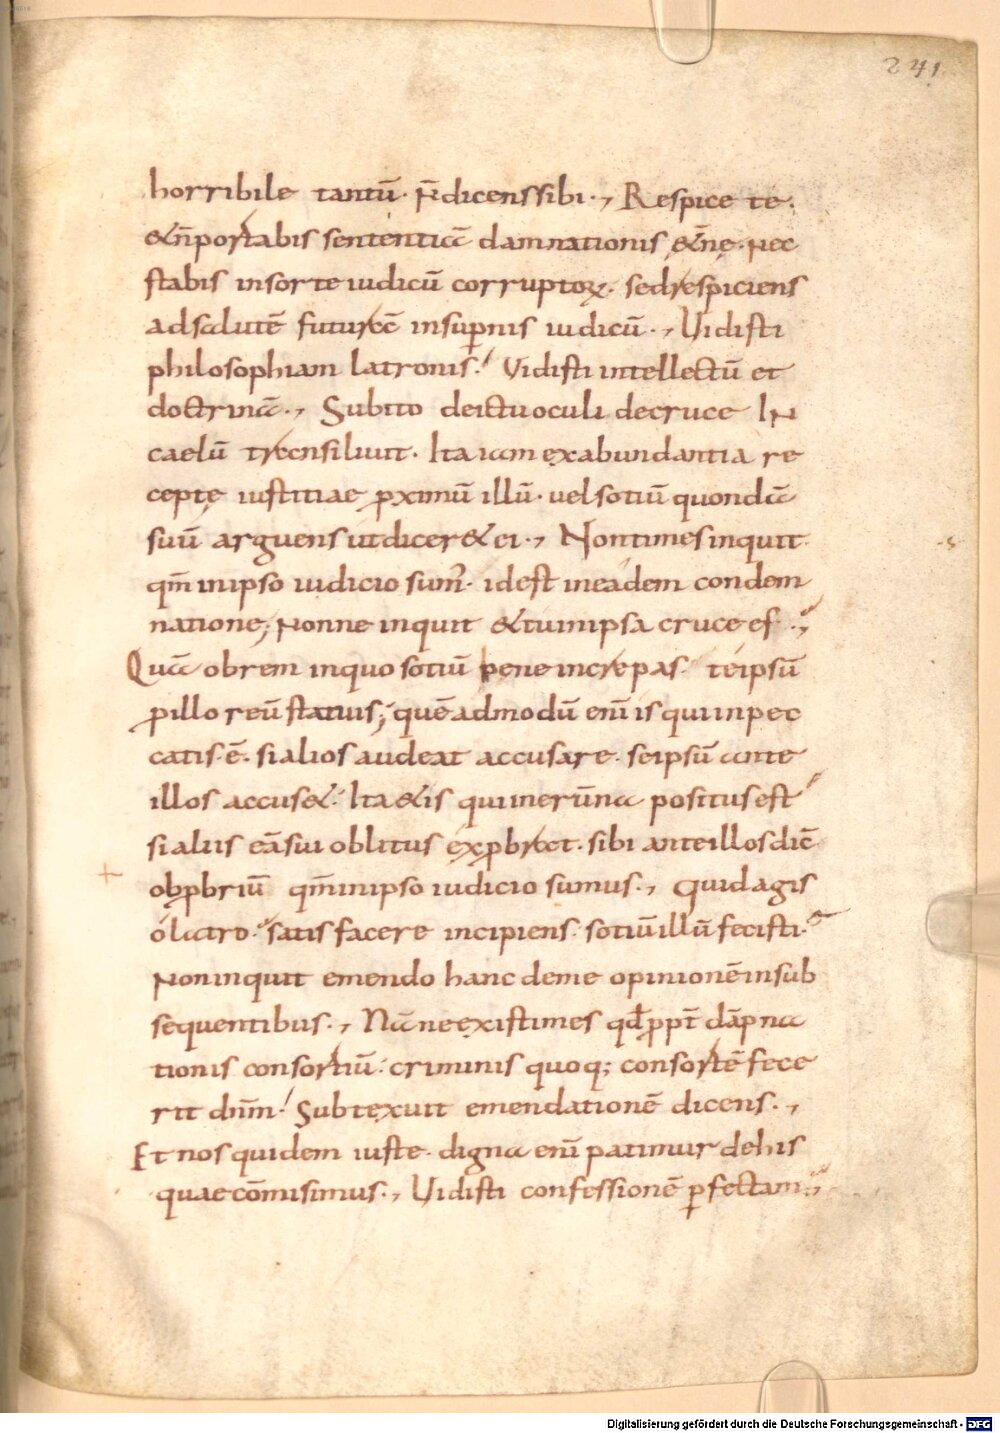 241
horribile tantū· r̄dicenssibi·, Respice te.
&n̄portabis sententiā damnationis &n̄e· nec
stabis insorte iudicū corruptoꝝ· sedrespiciens
adsalutē futurāē insuꝑnis iudicū·, Uidisti
philosophiam latronis. Uidisti intellectū et
doctrinā·, Subito deictuoculi decruce IN
caelū transiliuit· Ita iam exabundantia re
ceptę iustitiae ꝓximū illū· uelsotiū quondā
suū arguens utdicer& ei·, Nontimes inquit
qm̄ inipso iudicio sum̄· idest ineadem condem
natione; Nonne inquit &tuinipsa cruce es·,
Quā obrem inquo sotiū pene increpas· teipsū
ꝑillo reū statuis; quēadmodū enī is quiinpec
catis·ē· sialios audeat accusare· seipsū ante
illos accus&· Ita &is quinerūna positusest
sialiis eāsui oblitus exꝓbrat· sibi anteillosdic̄
obꝓbriū qm̄inipso iudicio sumus·, Quidagis
olatro· satis facere incipiens· sotiūillū fecisti·
Noninquit emendo hanc deme opinionēinsub
sequentibus·, Nāneexistimes qd̄ ꝓpt̄ dāpna
tionis consortiū· criminis quoq; consortē fece
rit dn̄m· Subtexuit emendationē dicens·,
Et nos quidem iuste· digna enī patimur dehis
quaecōmisimus·, Uidisti confessionē ꝑfectam·,
Digitalisierung gefördert durch die Deutsche Forschungsgemeinschaft - DFG